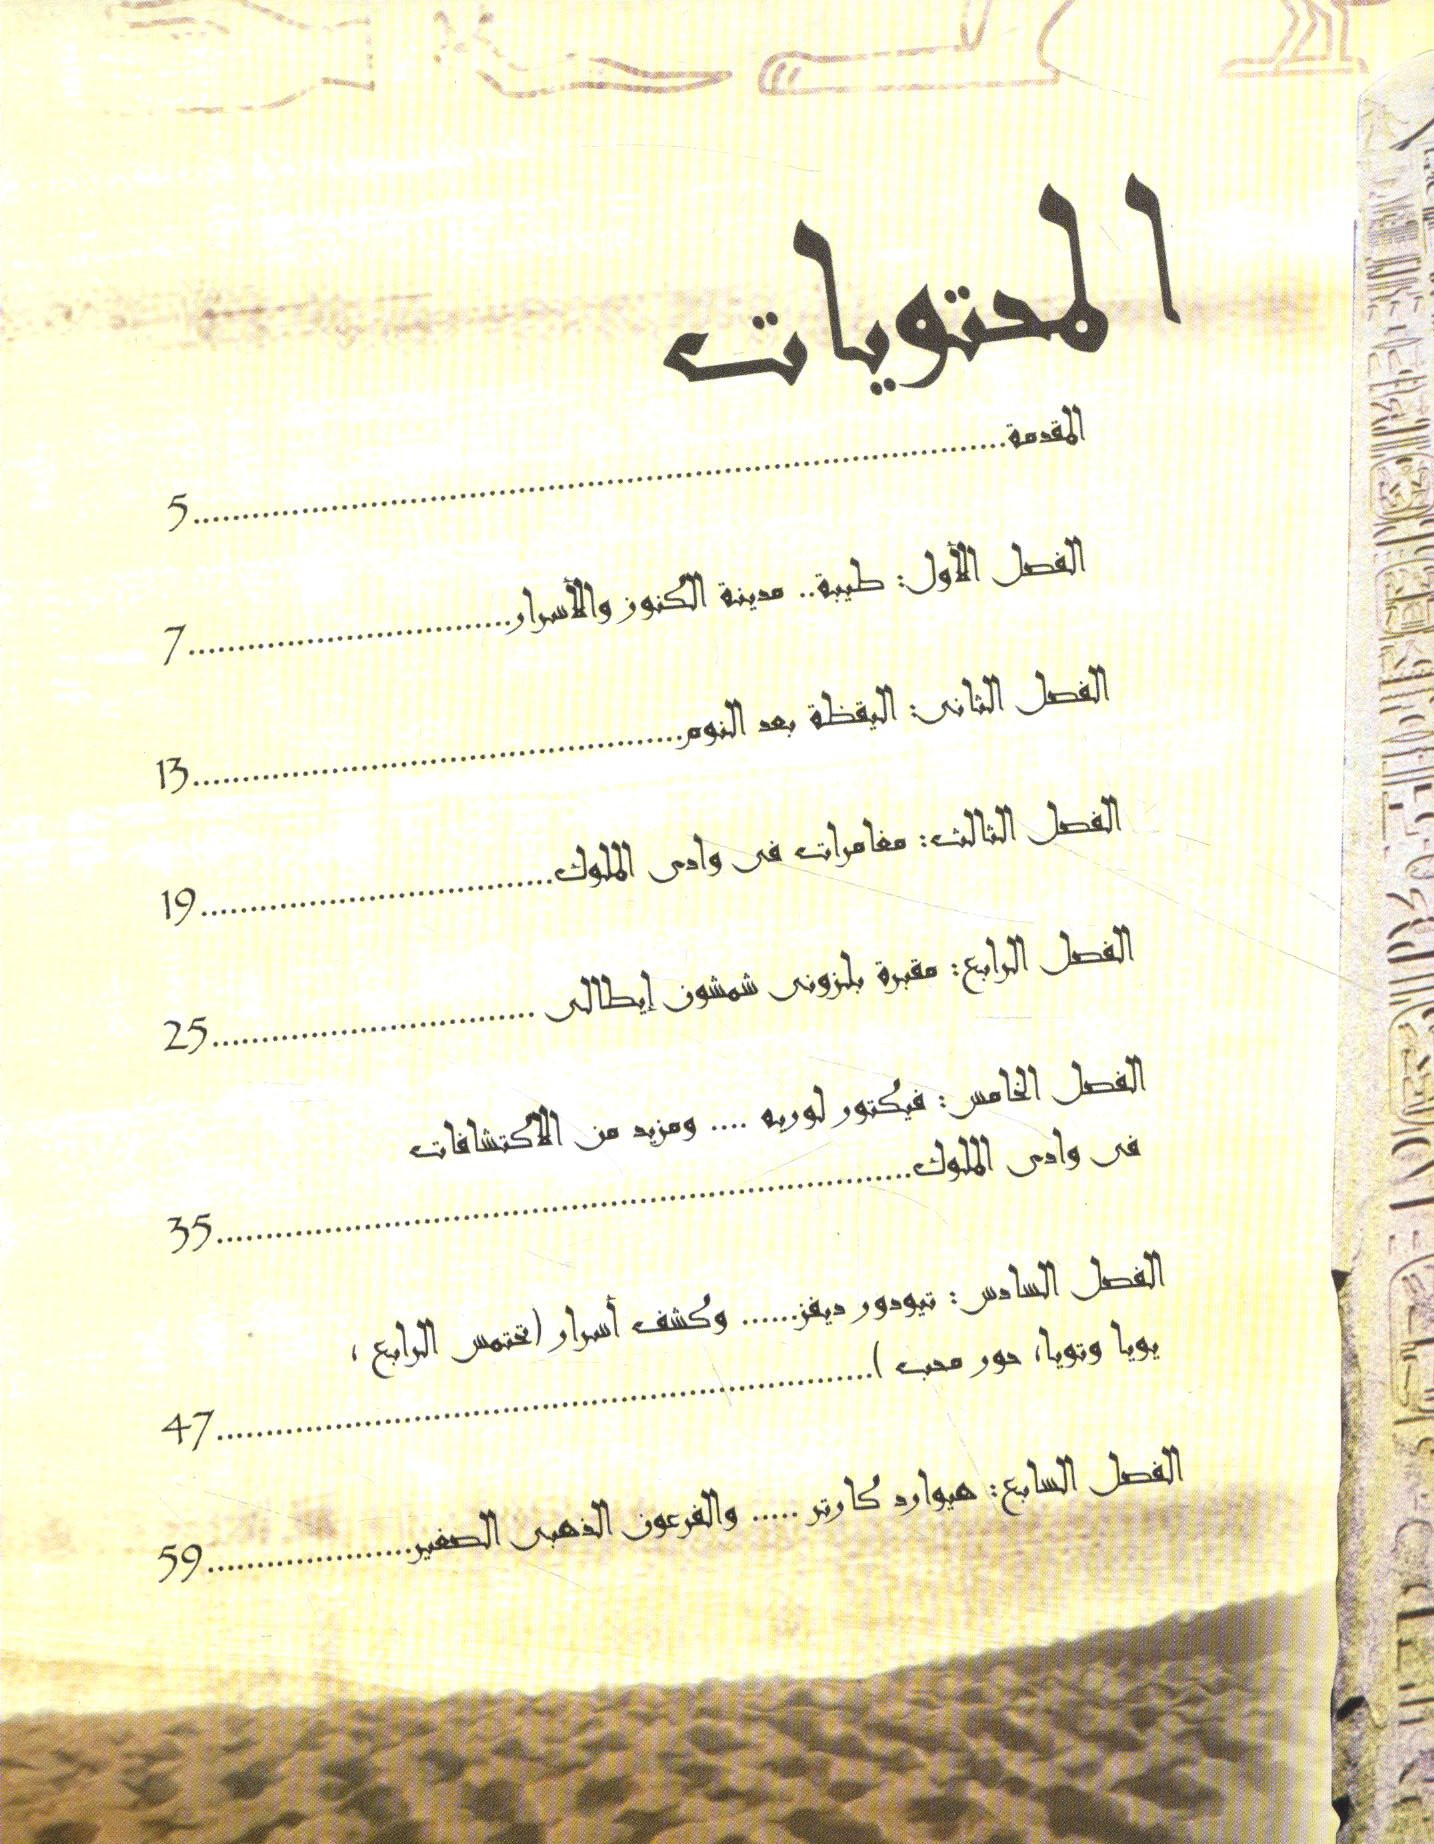 المحتويات
المقدمة..................................................5
الفصل الأول: طيبة.. مدينة الكنوز والأسرار..............................7
الفصل الثانى: اليقظة بعد النوم..............................................13
الفصل الثالث: مغامرات فى وادى الملوك..................................19
الفصل الرابع: مقبرة بلزونى شمشون إيطالى ..............................25
الفصل الخامس: فيكتور لوريه .... ومزيد من الاكتشافات
فى وادى الملوك..................................................35
الفصل السادس: تيودور ديفز...... وكشف أسرار (تحتمس الرابع ،
يويا وتويا، حور محب )..................................................47
الفصل السابع: هيوارد كارتر ..... والفرعون الذهبى الصغير....................59